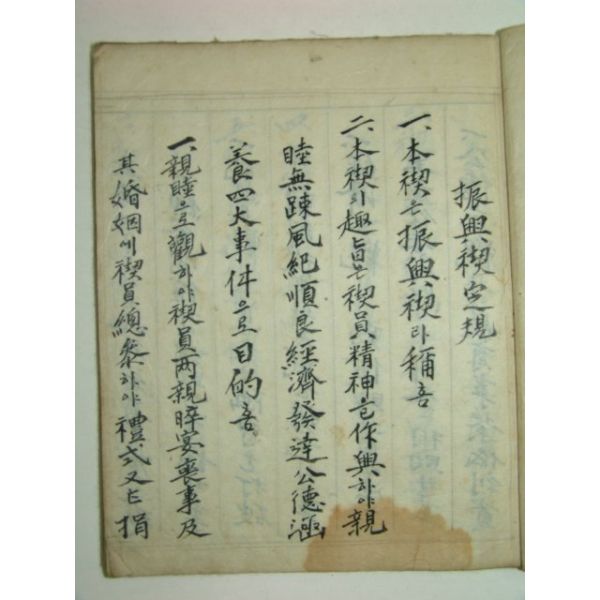 振興禊定規
一、本禊은振興禊라稱홈
二、本禊의趣旨은禊員精神을作興하야親
睦無疎風紀順良經濟發達公德涵
養四大事件으로目的홈
一、親睦으로觀하야禊員両親晬宴喪事及
其婚姻에禊員總參하야禮式又는捐